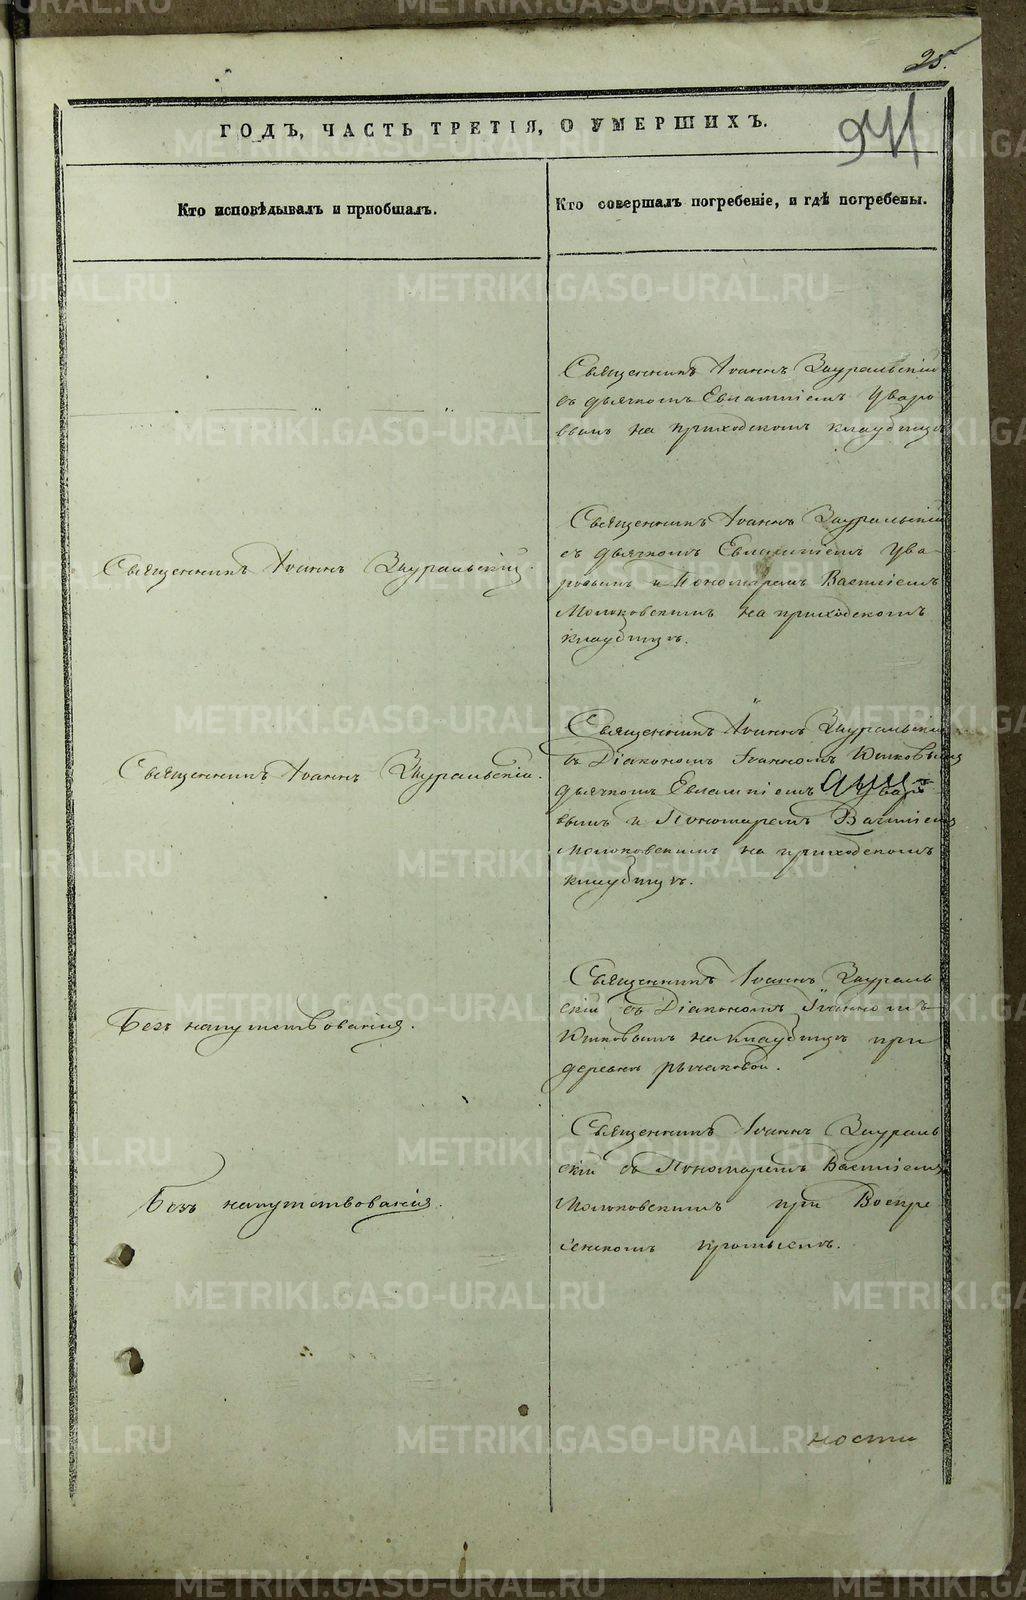 25.
941
ГОДЪ, ЧАСТЬ ТРЕТІЯ, О УМЕРШИХЪ.
Кто исповѣдывалъ и приобщалъ.
Кто совершалъ погребеніе, и гдѣ погребены.
Священникъ Іоаннъ Зауральскій
съ дьячкомъ Евлампіемъ Уваро
вымъ на приходскомъ кладбищѣ
Священникъ Іоаннъ Зауральскій.
Священникъ Іоаннъ Зауральскій
съ дьячкомъ Евлампіемъ Ува-
ровымъ и Пономаремъ Василіемъ
Молоковскимъ на приходскомъ
кладбищѣ.
Священникъ Іоаннъ Зауральскій.
Священникъ Іоаннъ Зауральскій
съ Діакономъ Іоанномъ
дьячкомъ Евлампіемъ Уваро
вымъ и Пономаремъ Василіемъ
Молоковскимъ на приходскомъ
кладбищѣ.
Безъ напутствованія.
Священникъ Іоаннъ Заураль
скій съ Діакономъ Іоанномъ
на кладбищѣ при
деревнѣ Рычковой.
Безъ напутствованія.
Священникъ Іоаннъ Заураль
скій съ Пономаремъ Василіемъ
Молоковскимъ при Воскре
сенскомъ промыслѣ.
ности
METRIKI.GASO-URAL.RU